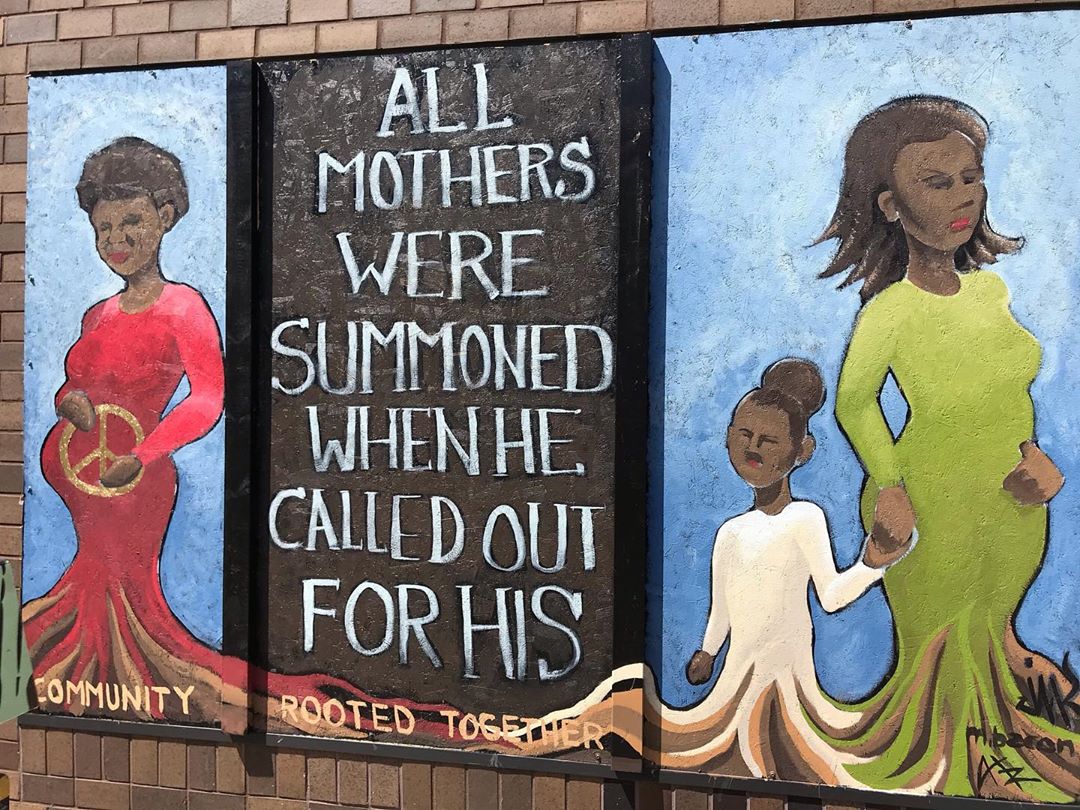 ALL
MOTHERS
WERE
SUMMONED
WHEN HE
CALLED OUT
FOR HIS
COMMUNITY ROOTED TOGETHER